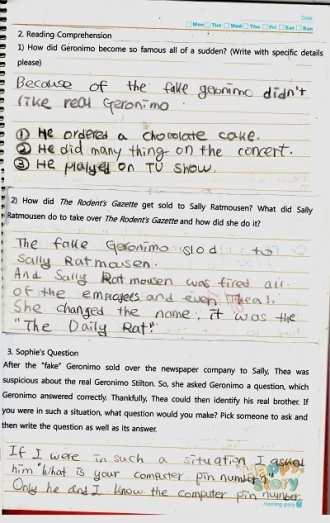 Date
Mon Tue Wed Thu Fri Sat Sun
2. Reading Comprehension
1) How did Geronimo become so famous all of a sudden? (Write with specific details
please)
Because of the fake geronimo didn't
like real Geronimo.
① He ordered a chocolate cake.
② He did many thing on the concert.
③ He played on TV show.
2) How did The Rodent's Gazette get sold to Sally Ratmousen? What did Sally
Ratmousen do to take over The Rodent's Gazette and how did she do it?
The fake Geronimo slod to
Sally Ratmousen.
And Sally Rat mousen was fired all
of the emploees and even Thea.
She changed the name, it was the
"The Daily Rat"
3. Sophie's Question
After the "fake" Geronimo sold over the newspaper company to Sally, Thea was
suspicious about the real Geronimo Stilton. So, she asked Geronimo a question, which
Geronimo answered correctly. Thankfully, Thea could then identify his real brother. If
you were in such a situation, what question would you make? Pick someone to ask and
then write the question as well as its answer.
If I were in such a situation I asked
him "What is your computer pin number"
Only he and I know the computer pin number.
Happy
Story
morning glory